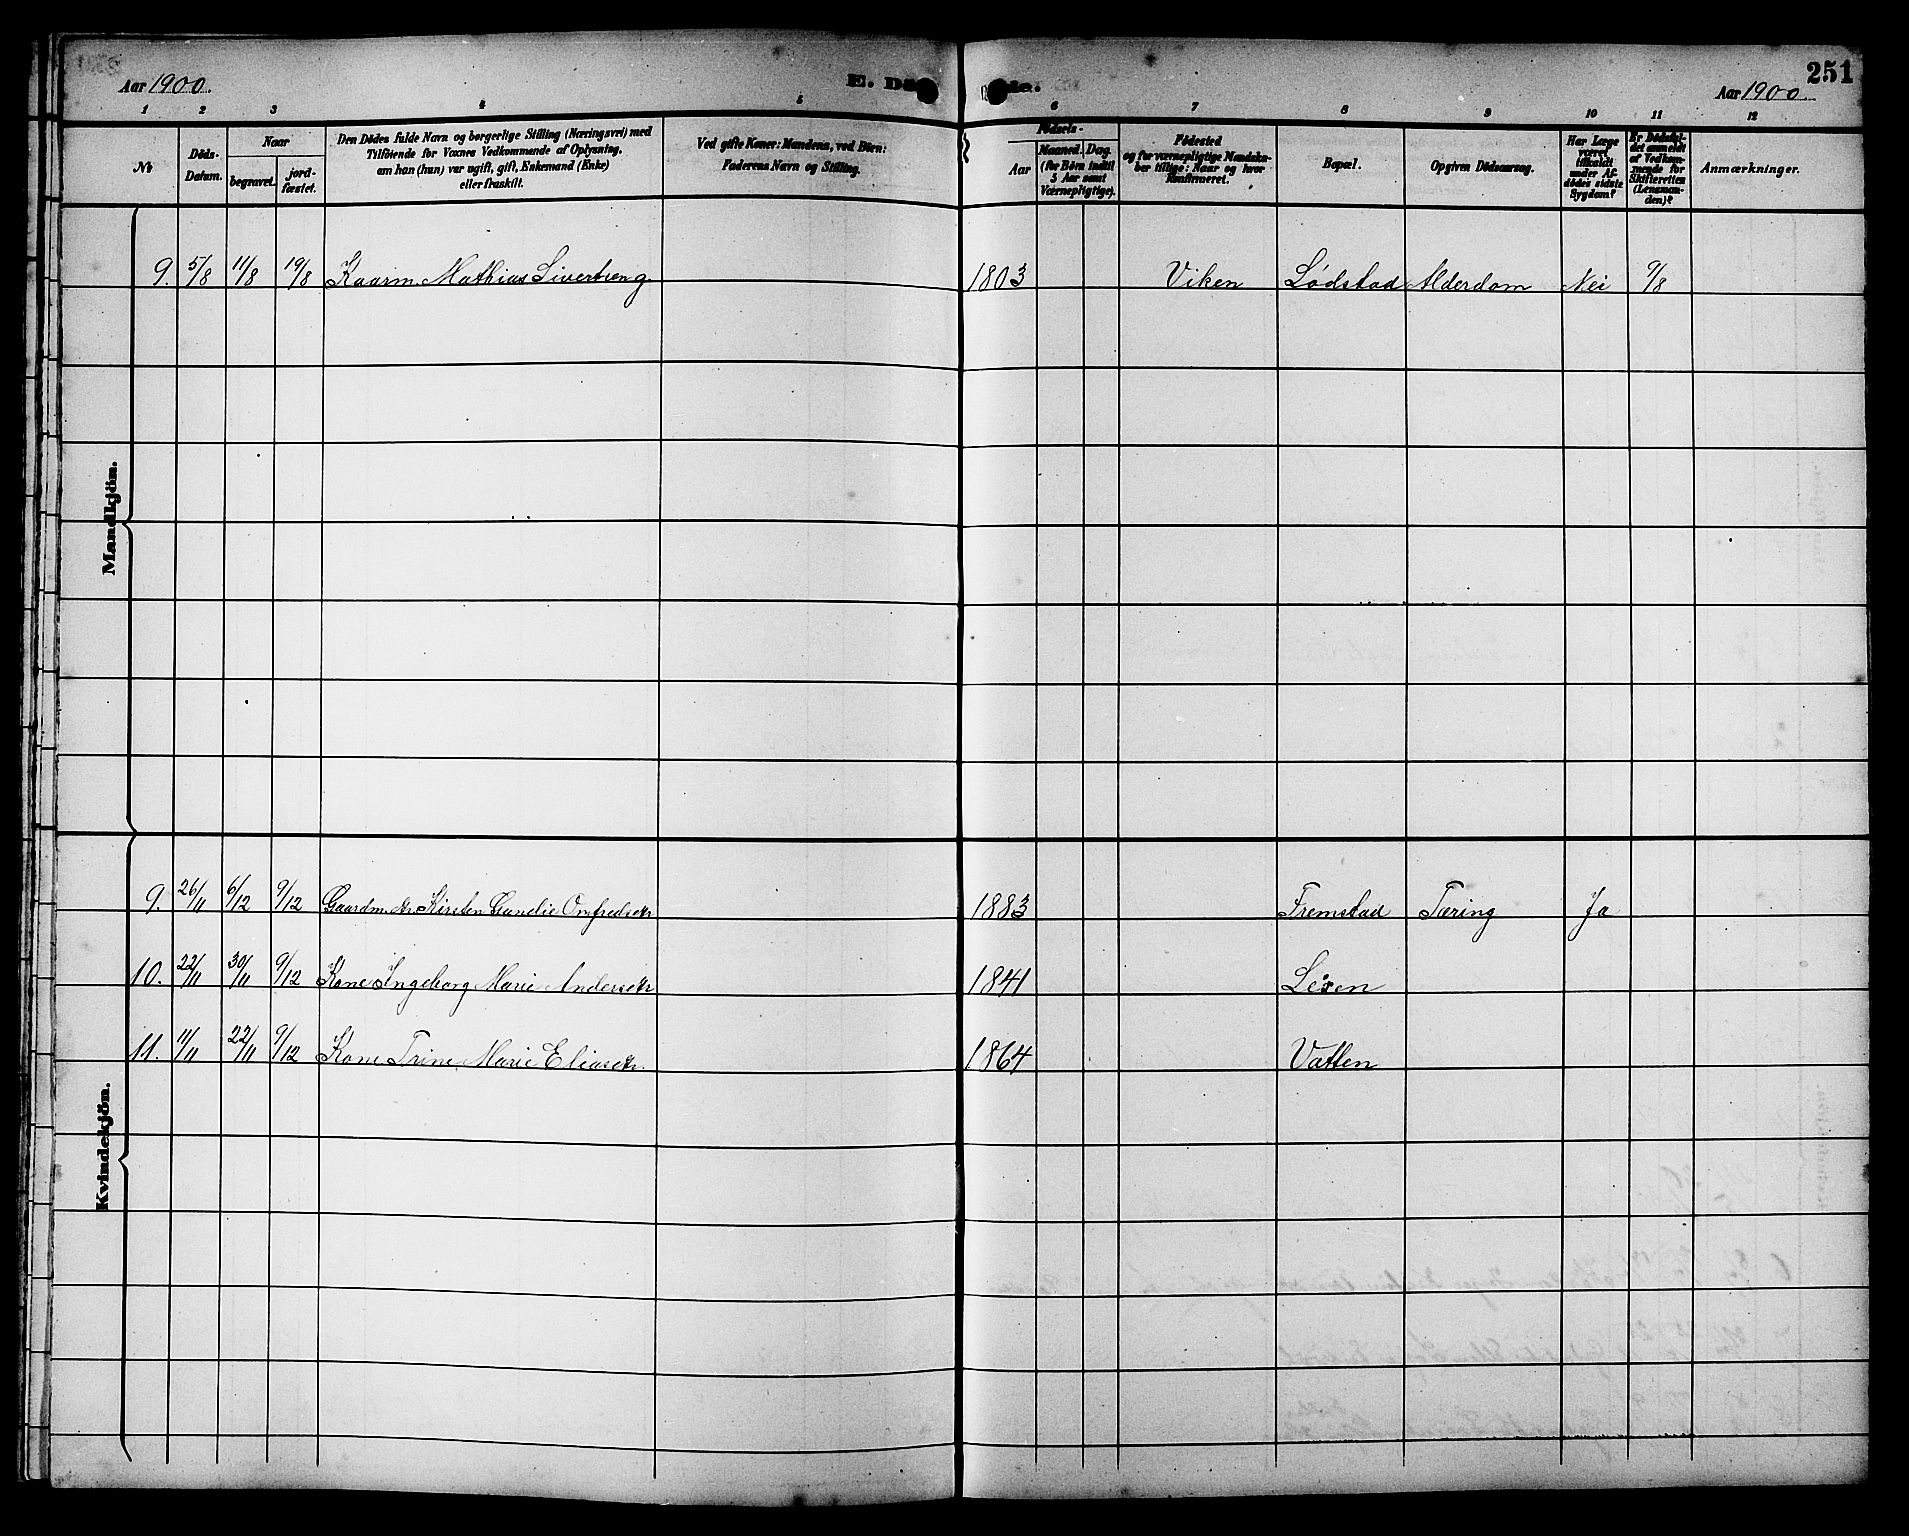 251
Aar 1900.
E. Dö de.
Aar 1900.
1 2 3 4 5 6 7 8 9 10 11 12
№
Döds-
Datum.
Naar
begravet.
jord-
fæstet.
Den Dödes fulde Navn og borgerlige Stilling (Næringsvei) med
Tilföiende for Voxnes Vedkommende af Oplysning,
om han (hun) var ugift, gift, Enkemand (Enke)
eller fraskilt.
Ved gifte Koner: Mandens, ved Börn:
Faderens Navn og Stilling.
Födsels-
Aar
Maaned. Dag.
(for Börn indtil
5 Aar samt
Værnepligtige).
Födested
og for værnepligtige Mandskа-
ber tillige: Naar og hvor
konfirmeret.
Bopæl.
Opgiven Dödsaarsag.
Har Læge
været
tilkaldt
under Af-
dödes sidste
Sygdom?
Er Dödsfal-
det anmeldt
af Vedkom-
mende for
Skifteretten
(Lensman-
den)?
Anmærkninger.
Mandkjön.
9. 5/8 11/8 19/8 Kaarm. Mathias Sivertseng 1803 Viken Lödstad Alderdom Nei 9/8
Kvindekjön.
9. 26/11 6/12 9/12 Gaardm. dtr. Kirsten Omfredsdtr 1883 Fremstad Tæring Ja
10. 22/11 30/11 9/12 Kone Ingeborg Marie Andersdtr 1841
11. 11/11 22/11 9/12 Kone Trine Marie Eliasdtr. 1864 Vatten